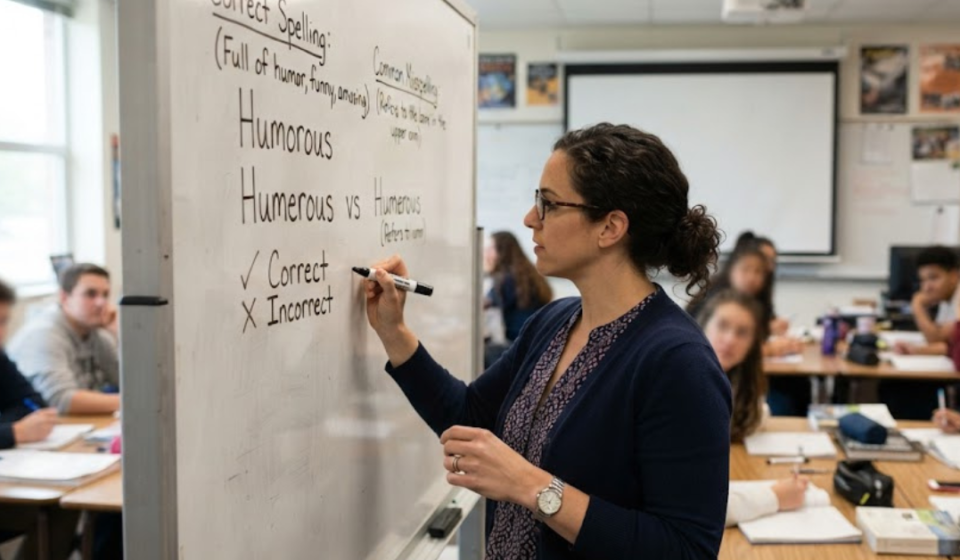 Correct Spelling:
(Full of humor, funny, amusing)
Humorous
Humerous vs Humerus
(Refers to
✓ Correct
X Incorrect
Common Misspelling:
(Refers to the bone in the
upper arm)